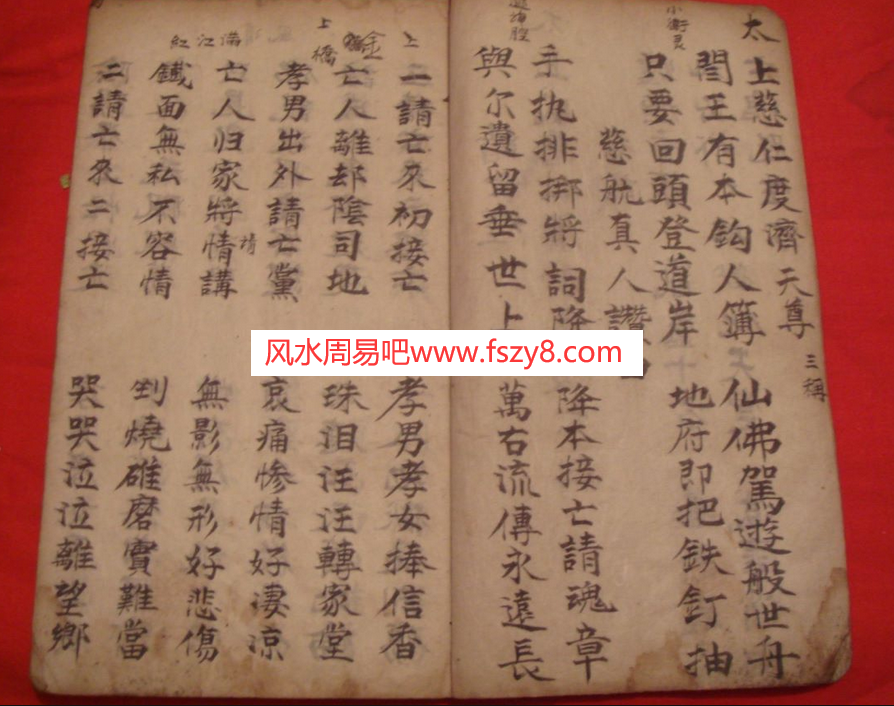 太上慈仁度濟天尊 三稱
小衛灵
閻王有本鈎人簿 仙佛駕遊般世舟
只要回頭登道岸 地府即把鉄釘抽
慈航真人讚
手执排挷將詞降 降本接亡請魂章
與尔遺留垂世上 萬右流傳永遠長
上
一請亡來初接亡 孝男孝女捧信香
金橋上
亡人離却陰司地 珠泪汪汪轉家堂
孝男出外請亡黨 哀痛惨情好凄凉
滿江紅
亡人归家將情講 無影無形好悲傷
鐵面無私不容情 剉燒碓磨實難當
二請亡來二接亡 哭哭泣泣離望鄉
风水周易吧www.fszy8.com